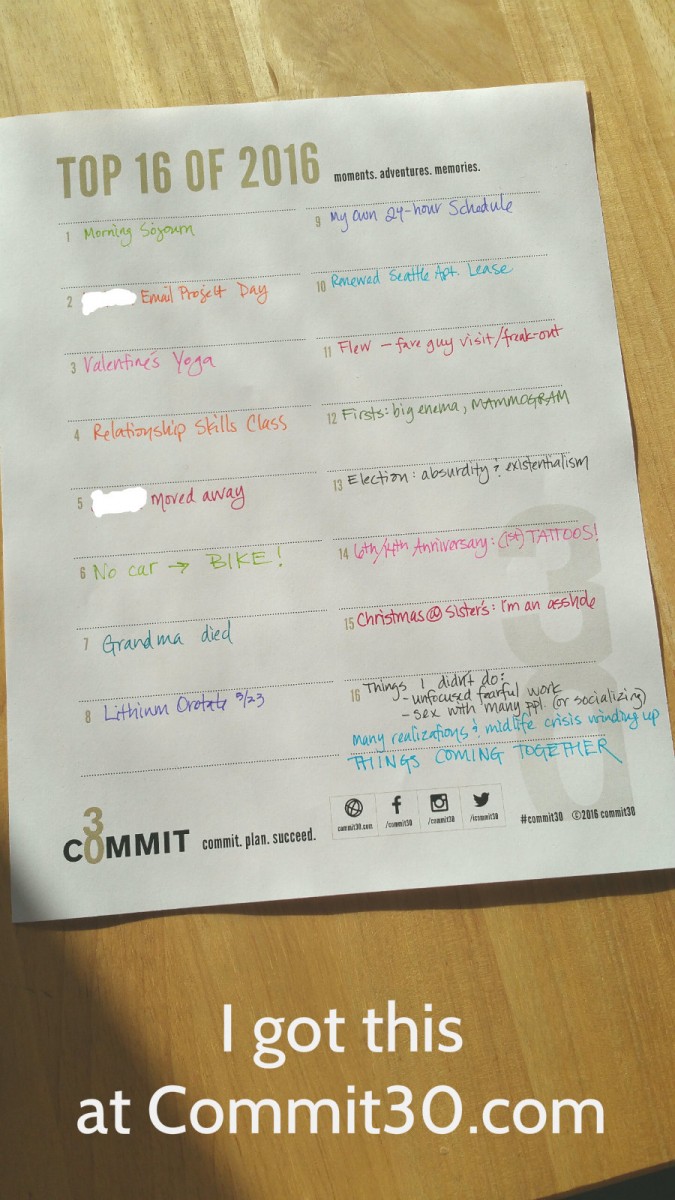 TOP 16 OF 2016 moments. adventures. memories.
1 Morning Sojourn
2 Email Project Day
3 Valentine's Yoga
4 Relationship Skills Class
5 moved away
6 No car → BIKE!
7 Grandma died
8 Lithium Orotate 9/23
9 My own 24-hour Schedule
10 Renewed Seattle Apt. Lease
11 Flew - fave guy visit/freak-out
12 Firsts: big enema, MAMMOGRAM
13 Election: absurdity & existentialism
14 6th/4th Anniversary: (1st) TATTOOS!
15 Christmas @ Sister's: I'm an asshole
16 Things I didn't do:
- unfocused fearful work
- sex with many ppl. (or socializing)
many realizations & midlife crisis winding up
THINGS COMING TOGETHER
30
COMMIT commit. plan. succeed.
commit30.com /commit30 /commit30 /commit30
#commit30 ©2016 commit30
I got this
at Commit30.com